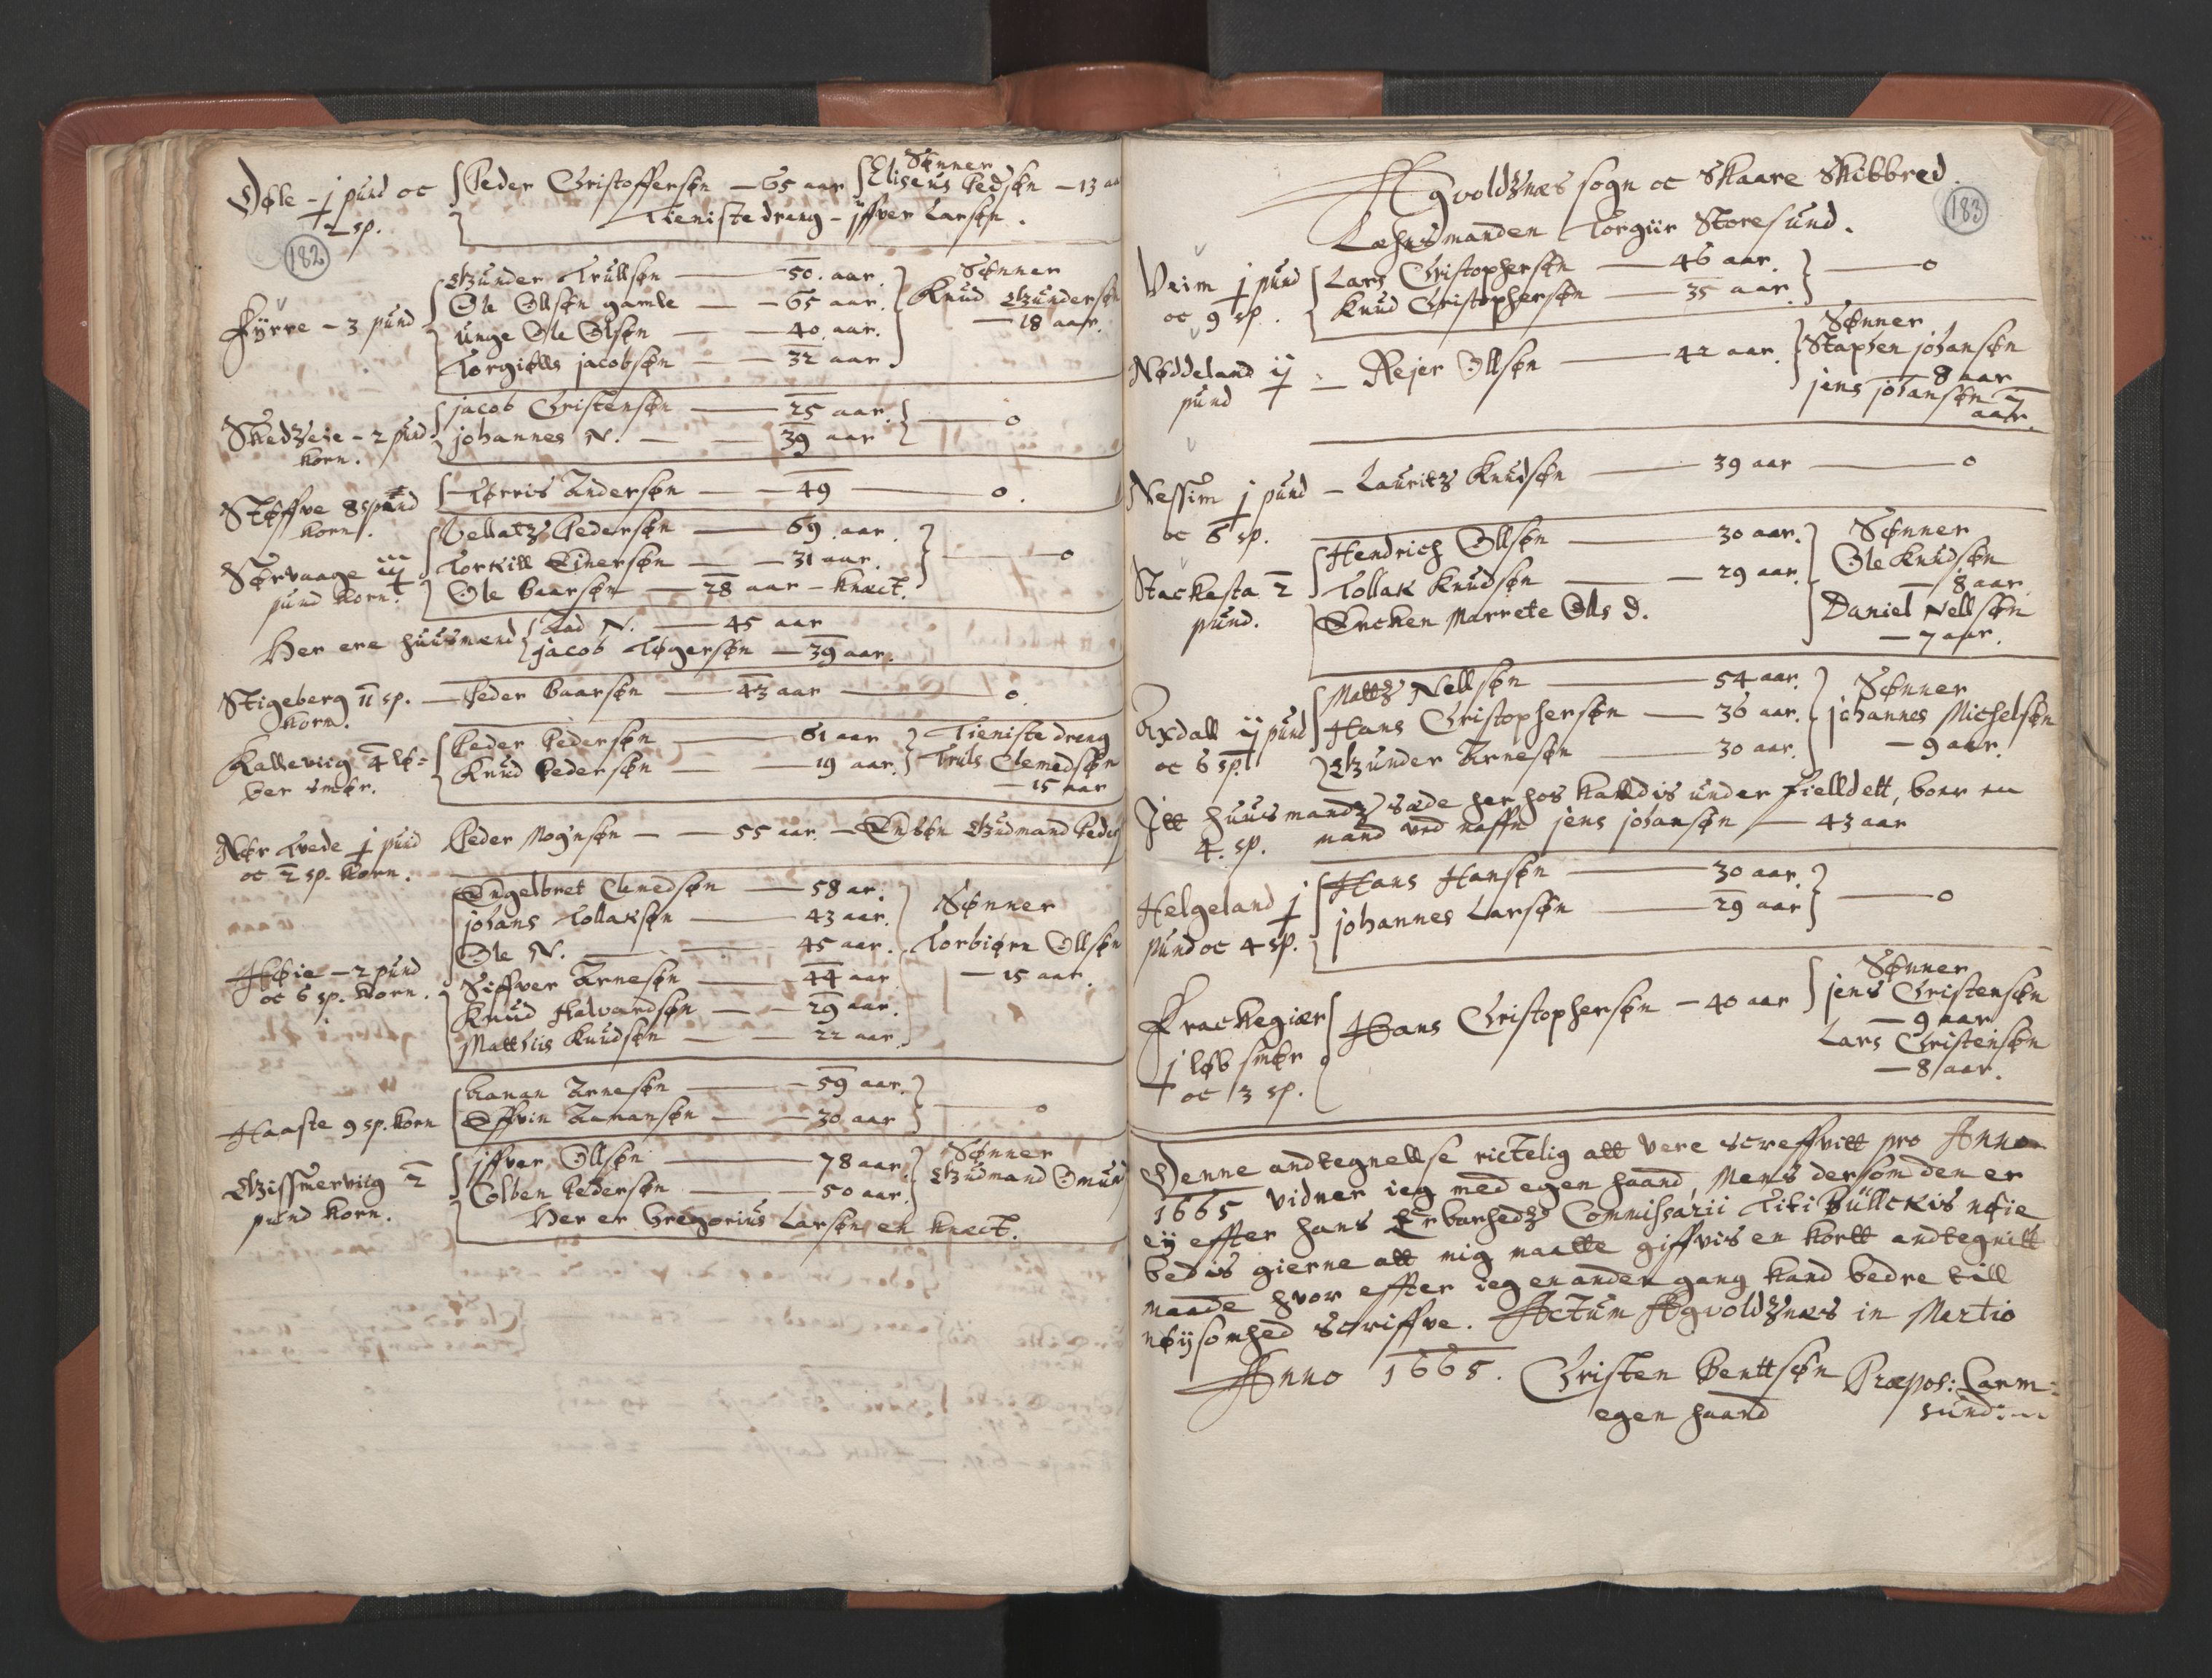 Døle - j pund oc
2 sp.
Peder Christoffersøn — 65 aar
Sønner
Eliseus Pedsøn - 13 aa
Tieniste dreng - jffver Larsøn.
182
Fyrre - 3 pund
Gunder Trullsøn — 50. aar.
Ole Ollsøn gamle — 65 aar.
Unge Ole Olsøn — 40. aar.
Torgiells jacobsøn — 32 aar
Sønner
Knud Gundersøn
— 18 aar.
Skedzeie - 2 pund
korn.
jacob Christensøn — 25 aar.
johannes N. — 39 aar
— o
Støffve 8 spand
korn.
Tørris Andersøn — 49 — o.
Sørvaage iij
pund korn.
Vellatz Pedersøn — 69. aar.
Torkill Einersøn — 31 aar.
Ole Baarsøn — 28 aar - knect.
— o
Her ere huusmænd
Aad N. — 45 aar
jacob Tøgersøn — 39 aar.
Stigeberg 11 sp.
korn.
— Peder Baarsøn — 43 aar — o.
Kalleviig 4 lø-
ber smør.
Peder Pedersøn — 61 aar
Knud Pedersøn — 19 aar.
Tieniste dreng
Truls Clemedsøn
— 15 aar
Nør Tvede j pund
oc 2 sp. korn.
Peder Mognsøn — 55 aar. — En søn Gudmand Peders
Høie - 2 pund
oc 6 sp. korn.
Engelbret Clemedsøn — 58 ar.
johans Tollaksøn — 43 aar.
Ole N. — 45 aar.
Siffver Arnesøn — 44 aar
Knud Halvardsøn — 29 aar.
Matthis Knudsøn — 22 aar.
Sønner
Torbiørn Ollsøn
— 15 aar.
Haaste 9 sp. korn
Aanan Arnesøn — 59 aar.
Effvin Aamansøn — 30 aar
— o
Gissmerviig 2
pund korn.
jffver Ollsøn — 78 aar.
Colben Pedersøn — 50 aar.
Sønner
Gudmand Omund
Her er Gregorius Larsøn en knect.
Agvoldznæs sogn oc Skaare Skibbred.
183
Læhnsmanden Torgiir Storesund.
Veim j pund
oc 9 sp.
Lars Christophersøn — 46 aar.
Knud Christophersøn — 35 aar.
— o
Nøddeland ij
pund
— Rejer Ollsøn — 42 aar.
Sønner
Staphen johansøn
8 aar
jens johansøn 7
aar.
Nessim j pund
oc 6 sp.
— Lauritz Knudsøn — 39 aar — o
Stackesta 2
pund.
Hendrich Ollsøn — 30 aar.
Tollak Knudsøn — 29 aar.
Encken Marrete Olls D.
Sønner
Ole Knudsøn
— 8 aar
Daniel Nellsøn
— 7 aar.
Axdall ij pund
oc 6 sp.
Mattz Nellsøn — 54 aar.
Hans Christophersøn — 36 aar.
Gunder Arnesøn — 30 aar.
Sønner
johannes Michelsøn
— 9 aar.
Itt huusmandz sæde her hos kaldis under fielldett, boer en
4. sp. mand ved naffn jens johansøn — 43 aar
Helgeland j
pund oc 4 sp.
Hans Hansøn — 30 aar.
johannes Larsøn — 29 aar
— o
Krackegiær
j løb smør
oc 3 sp.
Hans Christophersøn — 40 aar
Sønner
jens Christensøn
— 9 aar
Lars Christensøn
— 8 aar.
Denne andtegnellse rictelig att vere screffvitt pro Anno
1665 vidner ieg med egen haand, Mens dersom den er
eij effter hans Erbarhedz Commissarii Titi Büllckis nøie
bedis gierne att mig maatte giffvis en kortt andtegnitt
maade hvor effter ieg en anden gang kand bedre till
nøijsomhed scriffve. Actum Agvoldznæs in Martio
Anno 1665. Christen Benttsøn Præpos: Carm-
egen haand sund: